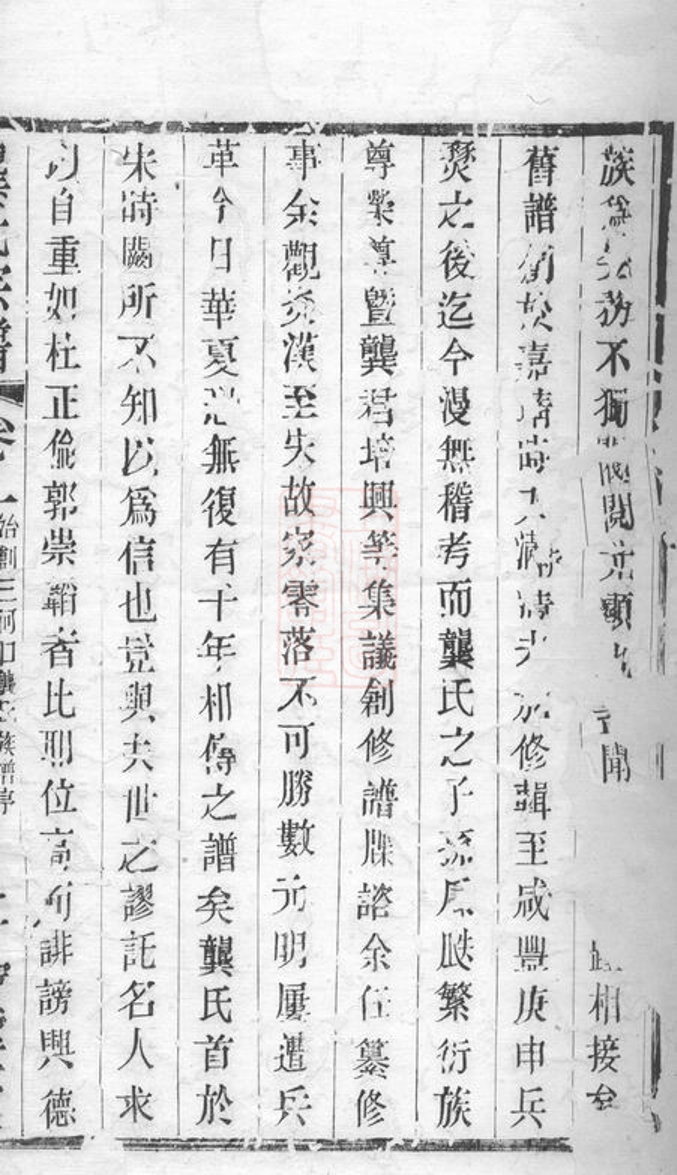 族為先務不獨閥閱光顯
聞
相接余
舊譜創於嘉靖時
修輯至咸豐庚申兵
燹之後迄今漫無稽考而龔氏之子孫
繁衍族
尊榮尊暨龔君培興等集議創修譜牒諮余任纂修
事余觀炎漢至失故家零落不可勝數元明屢遭兵
革今日華夏恐無復有千年相傳之譜矣龔氏首於
宋時闕所不知以為信也豈與夫世之謬託名人求
自重如杜正倫郭崇韜者比耶位高
誹謗興德
龔氏宗譜
卷一
治劃三河口龔氏族譜序